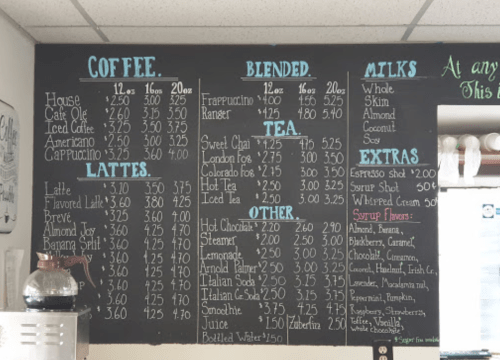 COFFEE.
12oz 16oz 20oz
House $2.50 3.00 3.25
Cafe Ole $2.60 3.15 3.50
Iced Coffee $3.25 3.50 3.75
Americano $2.50 3.00 3.25
Cappuccino $3.25 3.60 4.00
LATTES.
Latte $3.10 3.50 3.75
Flavored Latte $3.60 3.80 4.25
Breve $3.25 3.60 4.00
Almond Joy $3.60 4.25 4.70
Banana Split 3.60 4.25 4.70
3.60 4.25 4.70
3.60 4.25 4.70
3.60 4.25 4.70
3.60 4.25 4.70
3.60 4.25 4.70
BLENDED.
12oz 16oz 20oz
Frappuccino $4.00 4.55 5.25
Ranger $4.25 4.80 5.40
TEA.
Sweet Chai $4.25 4.75 5.25
London Fog $2.75 3.00 3.50
Colorado Fog $2.75 3.00 3.50
Hot Tea $2.50 3.00 3.25
Iced Tea $2.50 3.00 3.25
OTHER.
Hot Chocolate $2.20 2.60 2.90
Steamer $2.00 2.50 3.00
Lemonade $2.50 3.00 3.25
Arnold Palmer $2.50 3.00 3.25
Italian Soda $2.50 3.15 3.75
Italian Cr. Soda $2.50 3.15 3.75
Smoothie $3.75 4.25 4.75
Juice $1.50 Zuberfizz 2.50
Bottled Water $1.50
MILKS
Whole
Skim
Almond
Coconut
Soy
EXTRAS
Espresso shot $2.00
Syrup Shot 50¢
Whipped Cream 50¢
Syrup Flavors:
Almond, Banana,
Blackberry, Caramel,
Chocolate, Cinnamon,
Coconut, Hazelnut, Irish Cr.,
Lavender, Macadamia nut,
Peppermint, Pumpkin,
Raspberry, Strawberry,
Toffee, Vanilla,
White chocolate
*Sugar free available
At any
This i
Coffee